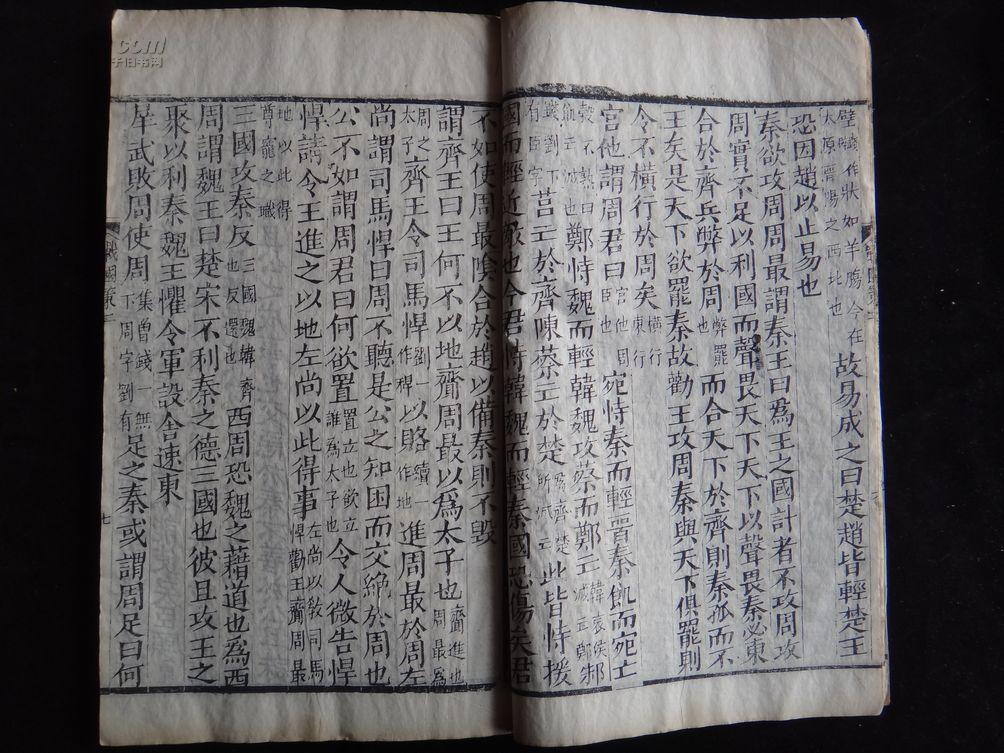 壁續作狀如羊腸今在
太原晉陽之西北也故易成之曰楚趙皆輕楚王
恐因趙以止易也
秦欲攻周周最謂秦王曰爲王之國計者不攻周攻
周實不足以利國而聲畏天下天下以聲畏秦必東
合於齊兵弊於周弊罷也而合天下於齊則秦孤而不
王矣是天下欲罷秦故勸王攻周秦與天下俱罷則
令不橫行於周矣橫行東行
宮他謂周君曰宮他周宛恃秦而輕晉秦飢而宛亡
穀不熟曰飢亡滅也鄭恃魏而輕韓魏攻蔡而鄭亡韓哀侯滅鄭邾
錢劉下有臣字莒亡於齊陳蔡亡於楚爲齊楚所滅亡此皆恃援
國而輕近敵也今君恃韓魏而輕秦國恐傷矣君
不如使周最陰合於趙以備秦則不毀
謂齊王曰王何不以地齎周最以爲太子也齎進也周最爲
周之太子齊王令司馬悍劉一作稈以賂續一作地進周最於周左
尚謂司馬悍曰周不聽是公之知困而交絶於周也
公不如謂周君曰何欲置置立也欲立誰爲太子也令人微告悍
悍請令王進之以地左尚以此得事左尚以敎司馬悍勸王齎周最
地以此得尊寵之職
三國攻秦反三國魏韓齊也反還也西周恐魏之藉道也爲西
周謂魏王曰楚宋不利秦之德三國也彼且攻王之
聚以利秦魏王懼令軍設舍速東
犀武敗周使周集曾錢一無下周字劉有足之秦或謂周足曰何
七